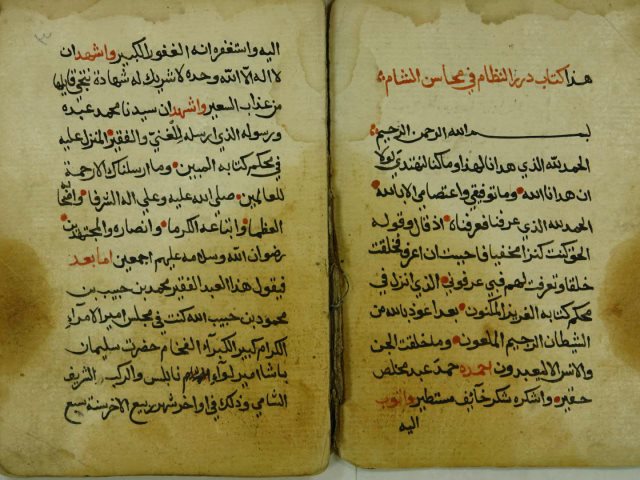 هذا كتاب درر النظام في محاسن الشام
بسم الله الرحمن الرحيم
الحمد لله الذي هدانا لهذا وما كنا لنهتدي لولا
ان هدانا الله وما توفيقي واعتصامي الا بالله
الحمد لله الذي عرفنا فعرفناه اذ قال وقوله
الحق كنت كنزا مخفيا فاحببت ان اعرف فخلقت
خلقا وتعرفت لهم فبي عرفوني الذي انزل في
محكم كتابه العزيز المكنون بعد اعوذ بالله من
الشيطان الرجيم الملعون وما خلقت الجن
والانس الا ليعبدون احمده حمد عبد مخلص
حقير واشكره شكر خائف مستطير واتوب
اليه
اليه واستغفره انه الغفور الكبير واشهد ان
لا اله الا الله وحده لا شريك له شهادة تنجي قايلها
من عذاب السعير واشهد ان سيدنا محمد عبده
ورسوله الذي ارسله للغني والفقير المنزل عليه
في محكم كتابه المبين وما ارسلناك الا رحمة
للعالمين صلى الله عليه وعلى اله الشرفا واصحابه
العظما واتباعه الكرما وانصاره والمجتهدين
رضوان الله وسلامه عليهم اجمعين اما بعد
فيقول هذا العبد الفقير محمد بن حبيب بن
محمود بن حبيب الله كنت في مجلس امير الامراء
الكرام كبير الكبراء الفخام حضرت سليمان
باشا امير لواء نابلس والركب الشريف
الشامي وذلك في اواخر شهر ربيع الاخر سنة سبع